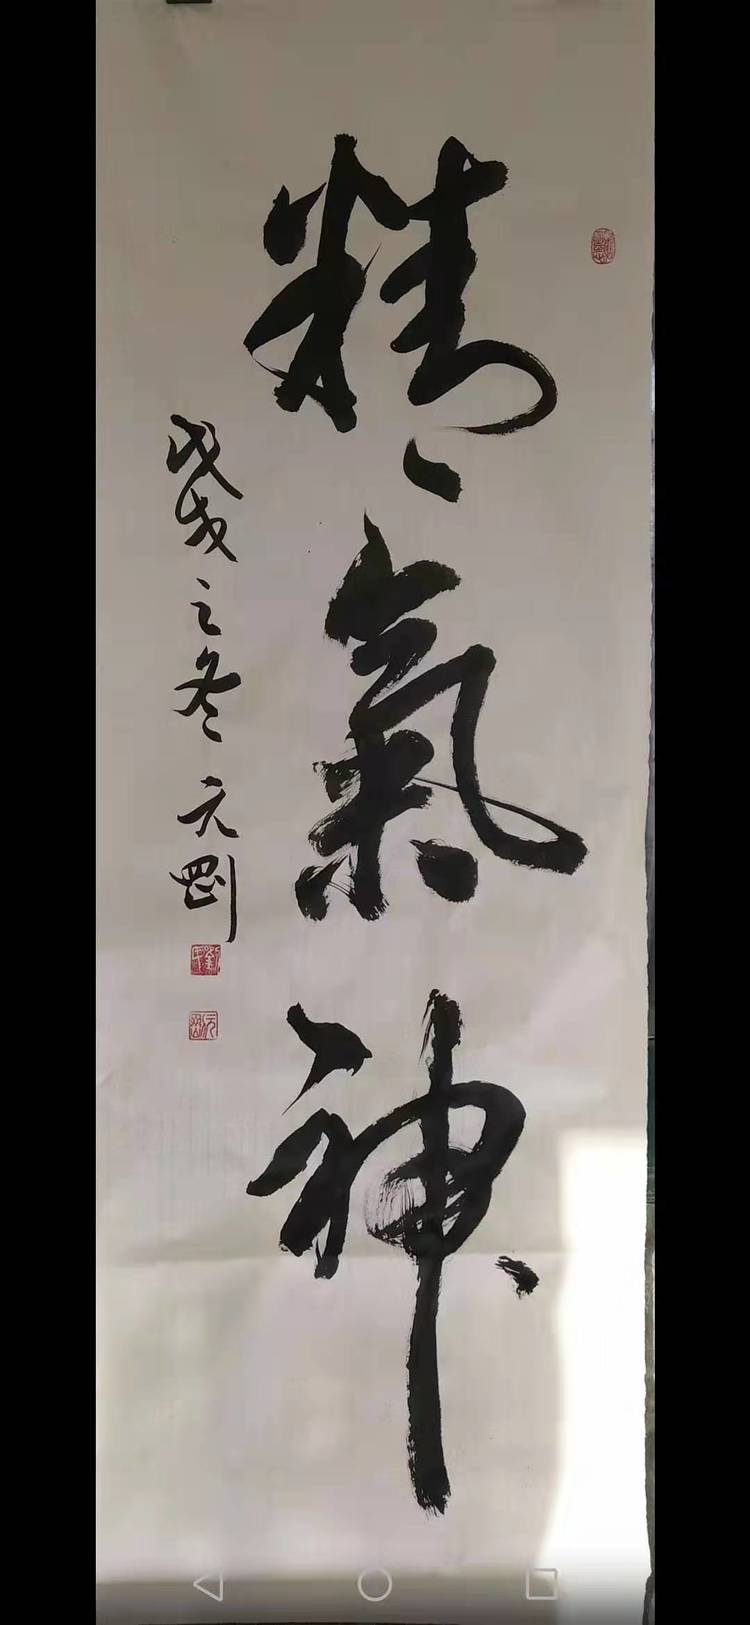 精氣神
戊戌之冬 元剛